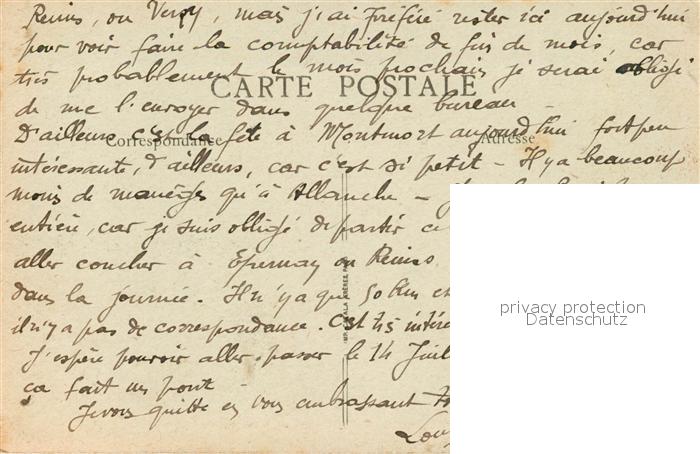 Reims, ou Verzy, mais j'ai préféré rester ici aujourd'hui
pour voir faire la comptabilité de fin de mois, car
très probablement le mois prochain je serai obligé
CARTE POSTALE
de me l'envoyer dans quelque bureau -
D'ailleurs c'est la fête à Montmort aujourd'hui fort peu
Correspondance
Adresse
intéressante, d'ailleurs, car c'est si petit - Il y a beaucoup
moins de manèges qu'à Allanche -
entière, car je suis obligé de partir
aller coucher à Epernay ou Reims
dans la journée. Il n'y a que 50 km et
il n'y a pas de correspondance. C'est très
J'espère pouvoir aller passer le 14 Juil
ça fait un pont
Je vous quitte en vous embrassant
Lou
privacy protection
Datenschutz